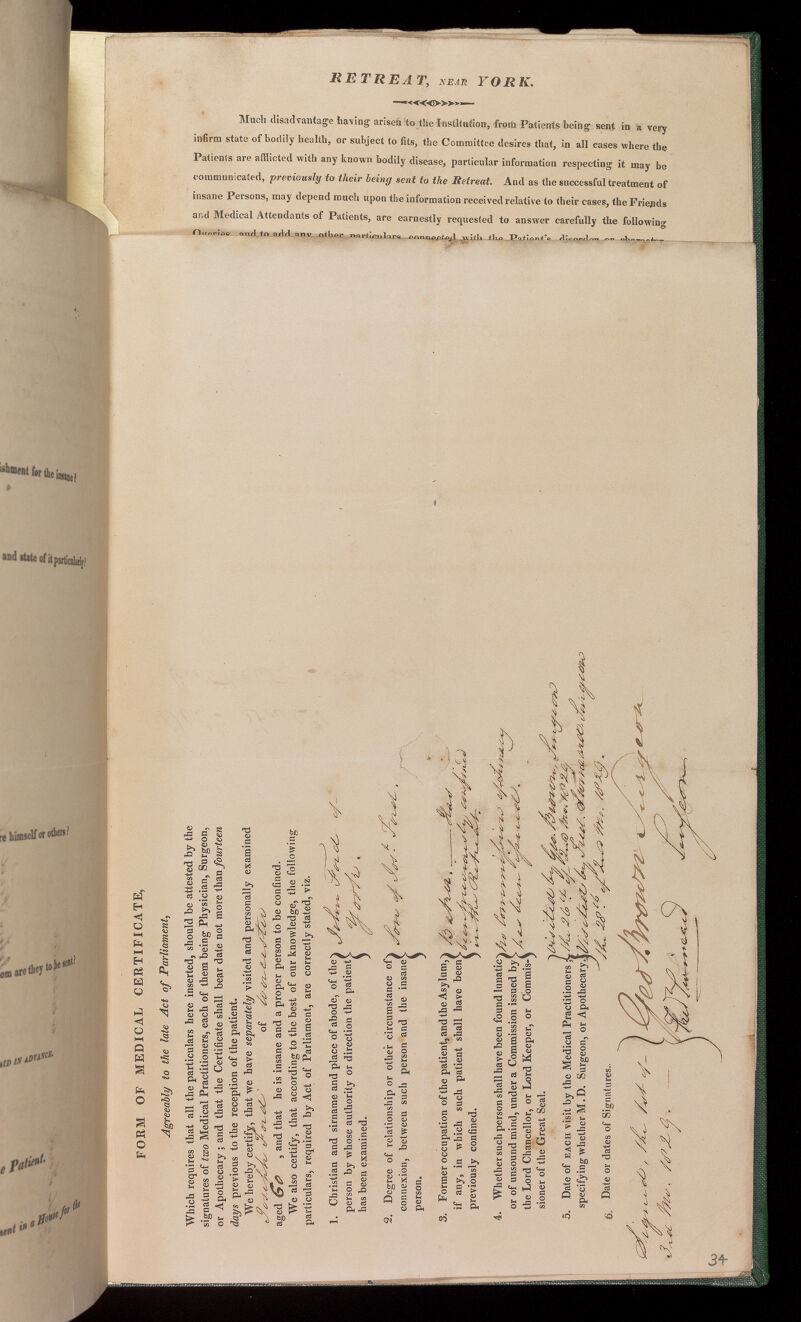 RETREAT, NEAR YORK.
Much disadvantage having arisen to the Institution, from Patients being sent in a very
infirm state of bodily health, or subject to fits, the Committee desires that, in all cases where the
Patients are afflicted with any known bodily disease, particular information respecting it may be
communicated, previously to their being sent to the Retreat. And as the successful treatment of
insane Persons, may depend much upon the information received relative to their cases, the Friends
and Medical Attendants of Patients, are earnestly requested to answer carefully the following
Queries and to add any other particulars connected with the Patient's disorder or
FORM OF MEDICAL CERTIFICATE,
Agreeably to the late Act of Parliament,
Which requires that all the particulars here inserted, should be attested by the
signatures of two Medical Practitioners, each of them being Physician, Surgeon,
or Apothecary; and that the Certificate shall bear date not more than fourteen
days previous to the reception of the patient.
We hereby certify, that we have separately visited and personally examined
Joseph Ford of Worcester
aged 60 , and that he is insane and a proper person to be confined.
We also certify, that according to the best of our knowledge, the following
particulars, required by Act of Parliament, are correctly stated, viz.
1. Christian and sirname and place of abode, of the
person by whose authority or direction the patient
has been examined.
John Ford of
York.
2. Degree of relationship or other circumstance of
connexion, between such person and the insane
person.
Son of Josh. Ford.
3. Former occupation of the patient, and the Asylum,
if any, in which such patient shall have been
previously confined.
Baker. Has
been previously confined
in the Retreat.
4. Whether such person shall have been found lunatic
or of unsound mind, under a Commission issued by
the Lord Chancellor, or Lord Keeper, or Commis-
sioner of the Great Seal.
No Commission of Lunacy
has been issued.
5. Date of EACH visit by the Medical Practitioners
specifying whether M.D. Surgeon, or Apothecary.
Visited by Geo Brown, Surgeon
the 26th of this Mo. 1829
Visited by Surgeon
the 28th of this Mo. 1829.
6. Date or dates of Signatures.
Signed, the 1st of
3rd Mo. 1829.
Geo. Brown Surgeon
Surgeon
34
ishment for the insane?
and state of it particularly?
re himself or others?
om are they to be sent?
AID IN ADVANCE.
e Patient.
sent in a House for the